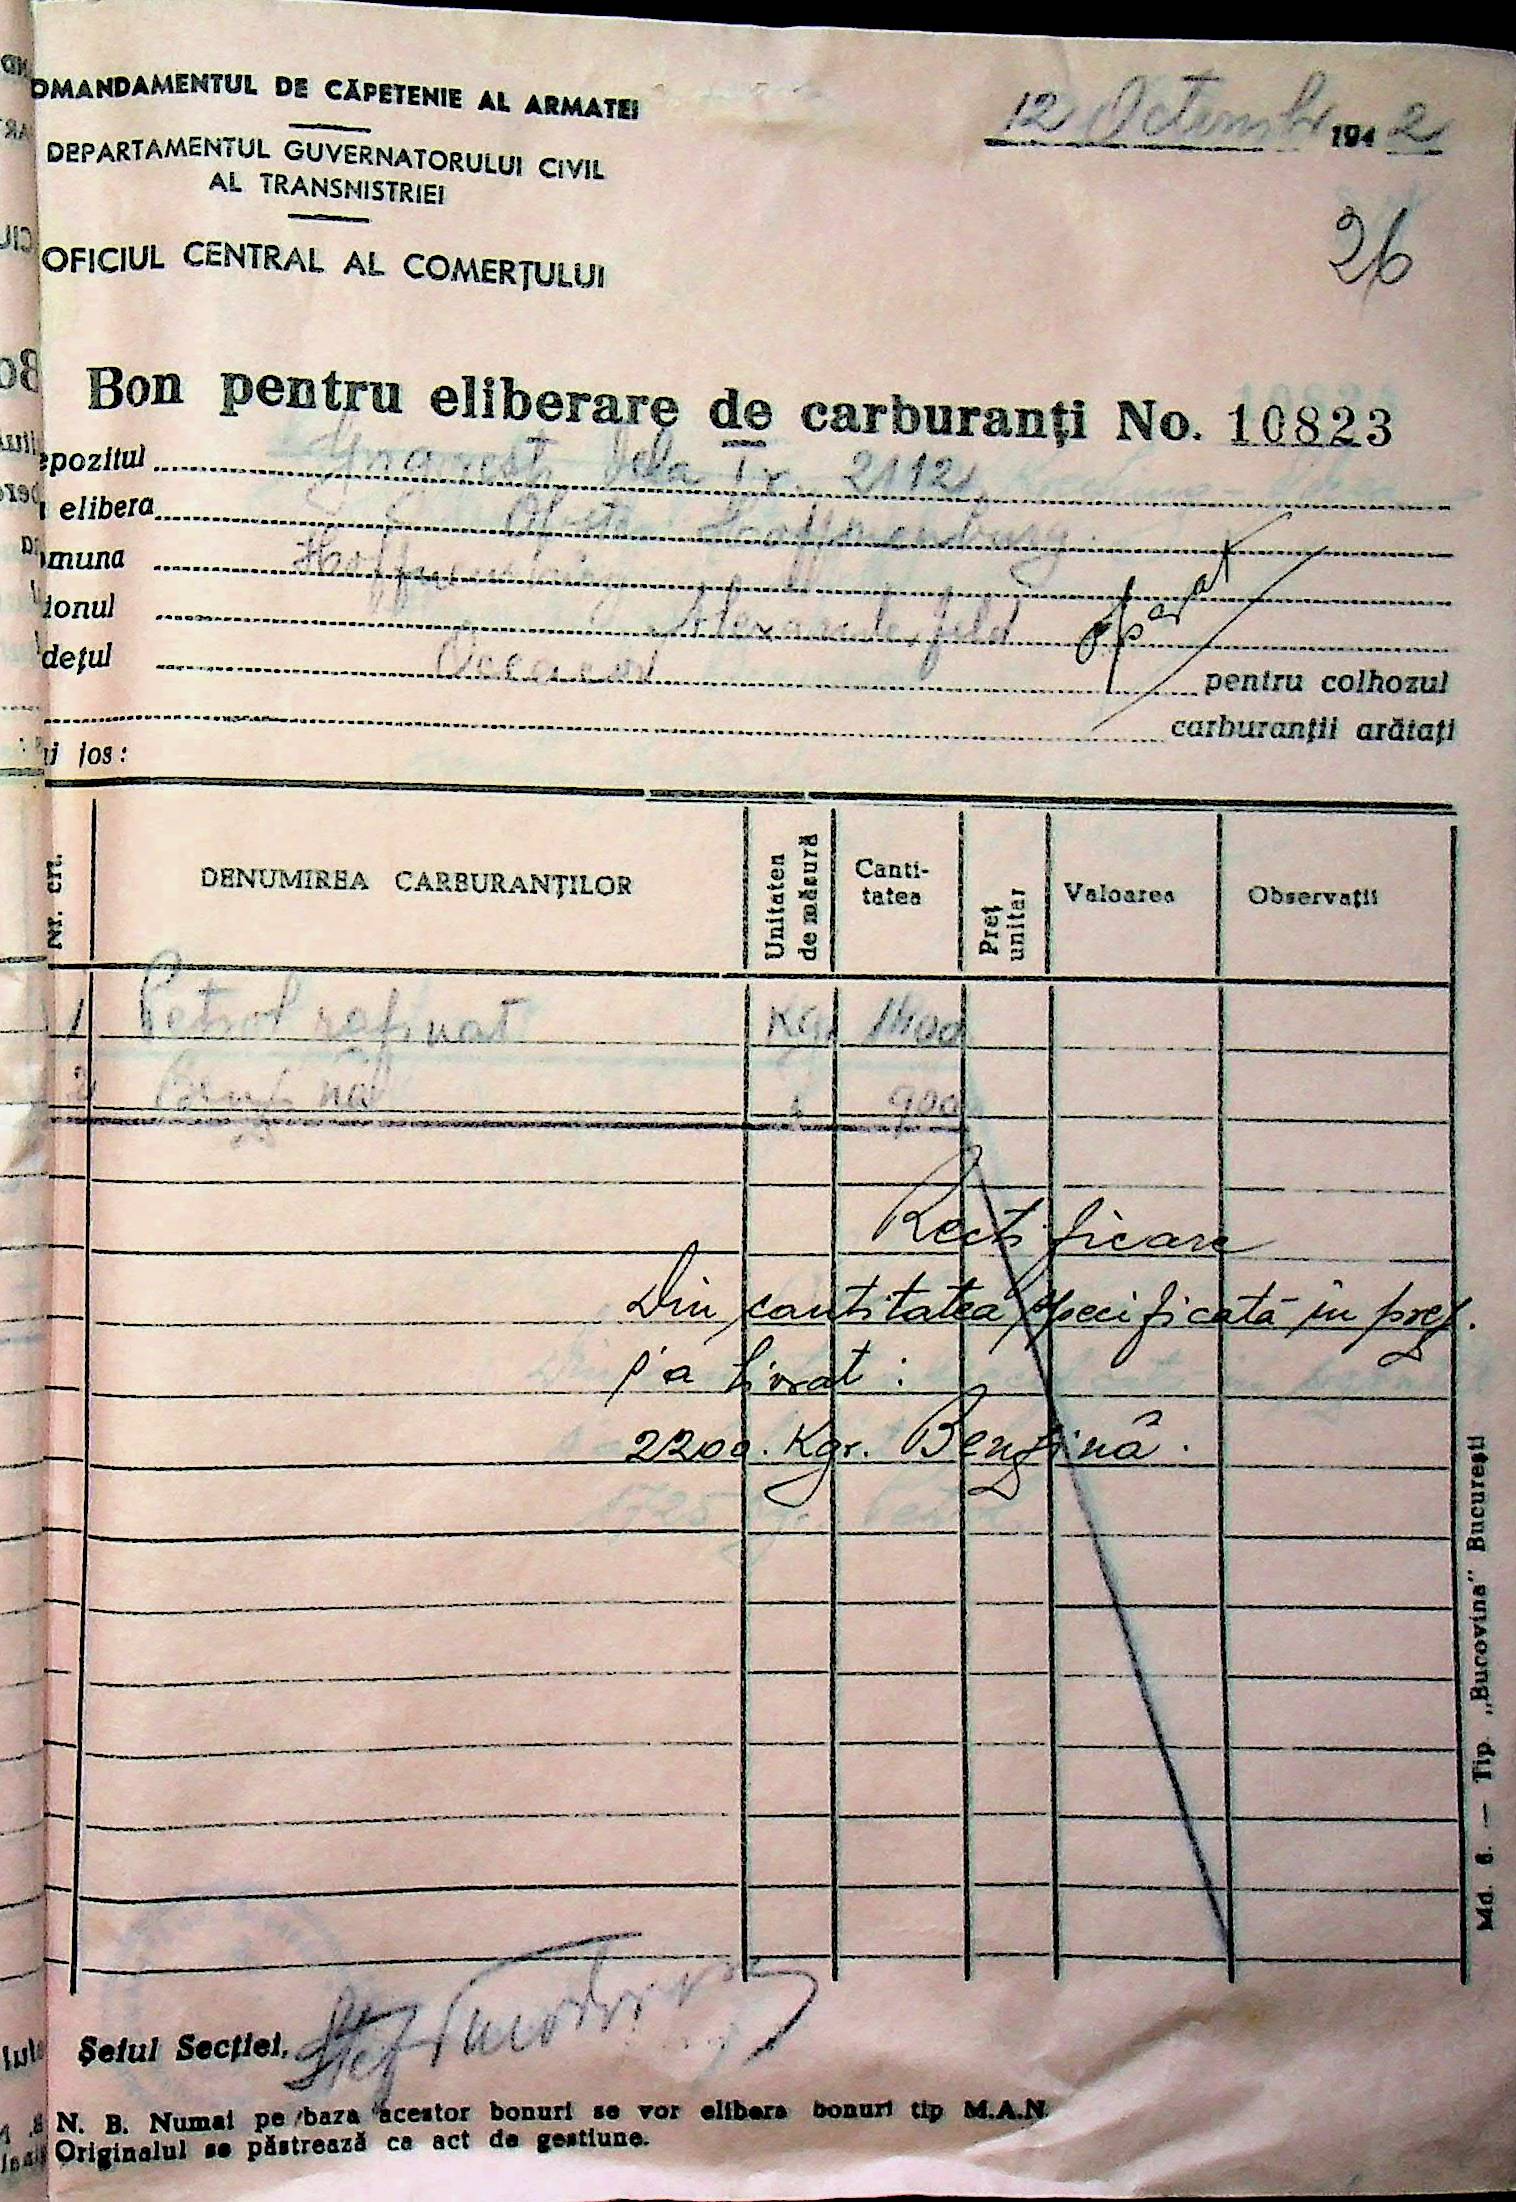 OMANDAMENTUL DE CĂPETENIE AL ARMATEI
12 Octembr 1942
DEPARTAMENTUL GUVERNATORULUI CIVIL
AL TRANSNISTRIEI
26
OFICIUL CENTRAL AL COMERȚULUI
Bon pentru eliberare de carburanți No. 10823
epozitul 2112
elibera Hoffmenburg
muna
ionul
dețul pentru colhozul
carburanții arătați
i jos:
Nr. crt. DENUMIREA CARBURANȚILOR Unitatea de măsură Canti-tatea Preț unitar Valoarea Observații
1 Petrol rafinat Kgr 1400
2 Benzină 900
Rectificare
Din cantitatea specificată în prez.
s'a livrat :
2200. Kgr. Benzină.
Șeful Secției,
N. B. Numai pe baza acestor bonuri se vor elibera bonuri tip M.A.N.
Originalul se păstrează ca act de gestiune.
Md. 6. — Tip. „Bucovina" București